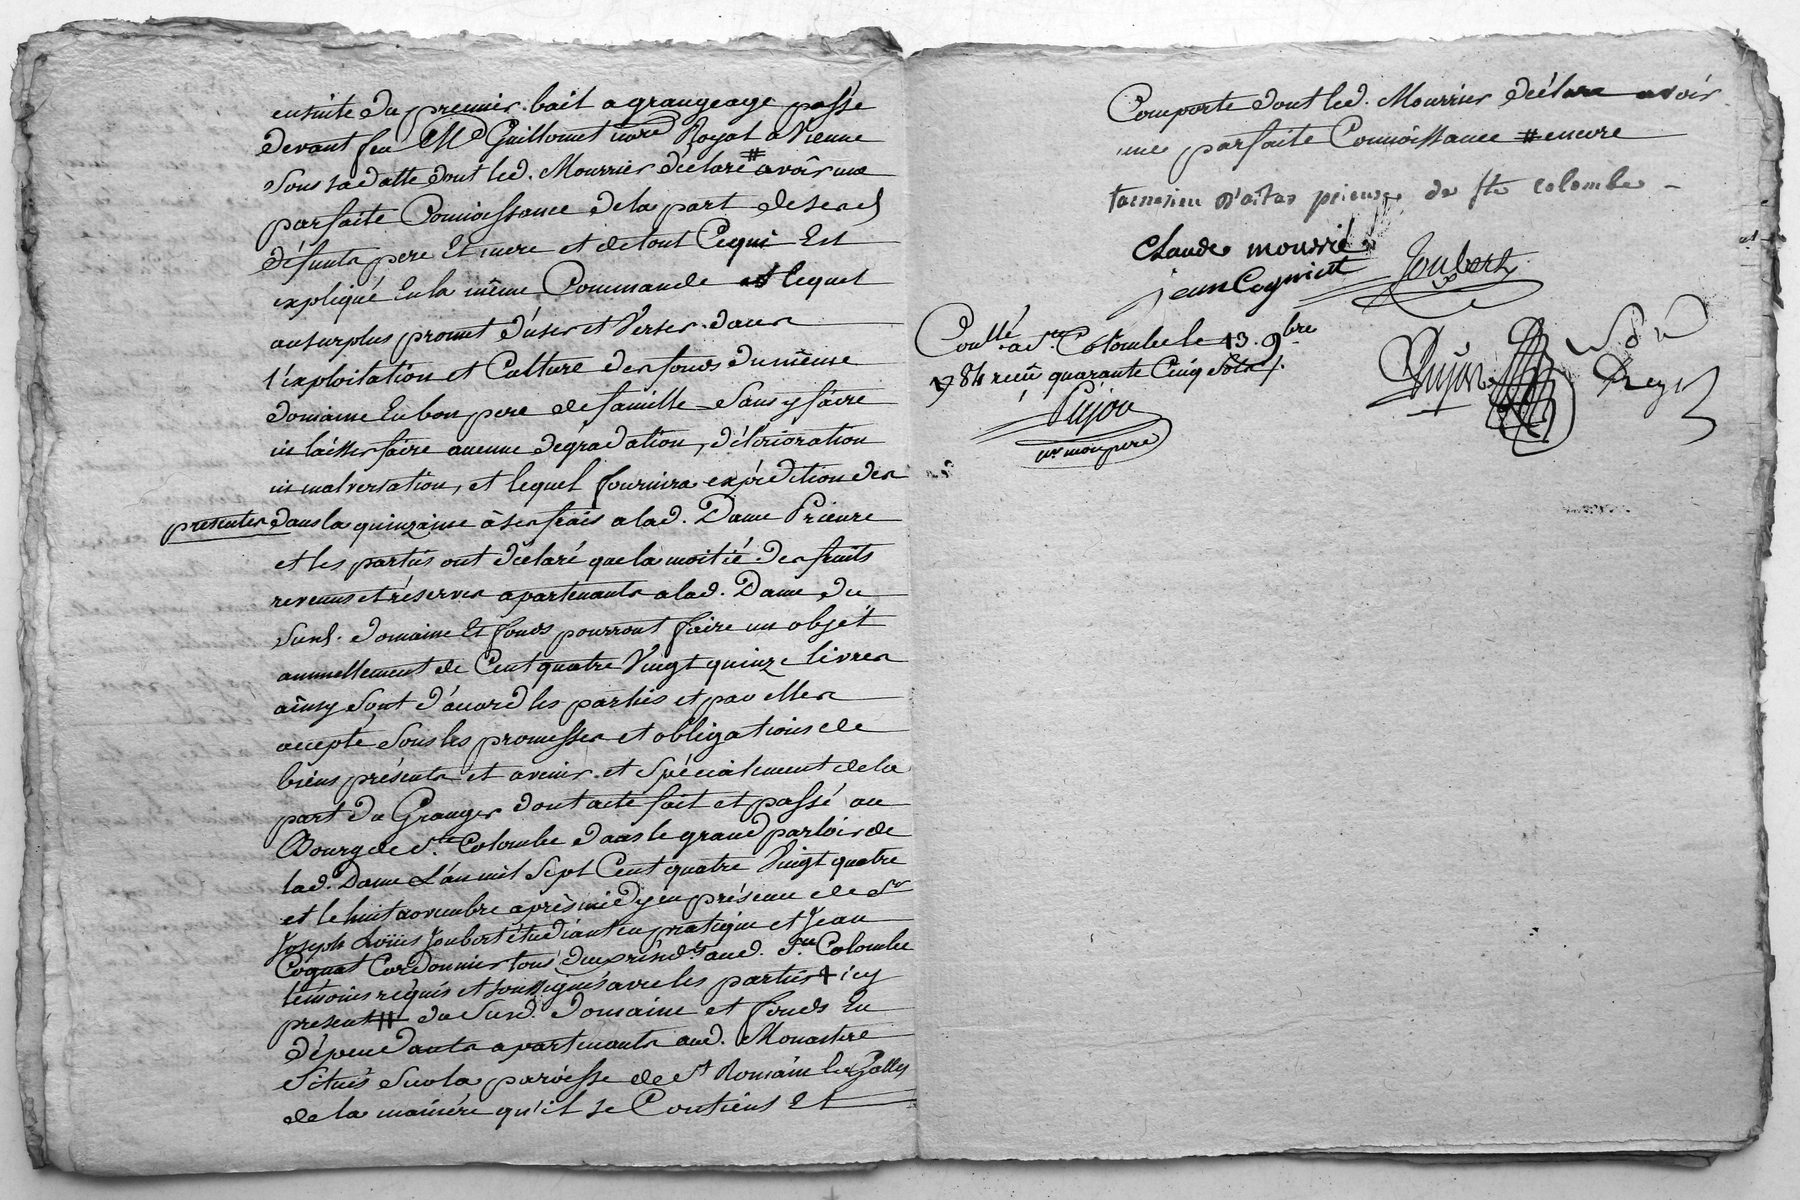 ensuite du premier bail a grangeage passé
devant feu Me Guillomet nore Royal a Vienne
sous sa datte dont led. Mourrier declare # avoir une
parfaite Connoissance de la part de sesd
défunts pere Et mere et de tout Cequi Est
expliqué En la même Commande et lequel
au surplus promet d'user et Verser dans
l'exploitation et Culture des fonds du même
domaine En bon pere de famille Sans y faire
ni laisser faire aucune dégradation, détérioration
ni malversation, et lequel fournira expédition des
presentes dans la quinzaine à ses frais a lad. Dame Prieure
et les parties ont déclaré que la moitié des fruits
revenus et réserves apartenants a lad. Dame du
Susd. domaine Et fonds pourront faire un objet
annuellement de Cent quatre Vingt quinze livres
ainsy Sont d'accord les parties et par elles
accepté Sous les promesses et obligations de
biens présents et avenir et Spécialement de la
part du Granger dont acte fait et passé au
Bourg de Ste Colombe dans le grand parloir de
lad. Dame L'an mil Sept Cent quatre Vingt quatre
et le huit novembre après midy en présence de Sr
Joseph Loüis Joubert étudiant en pratique et Jean
Coquat Cordonnier tous deux résidts aud. Ste Colombe
temoins requis et soussignés avec les parties + icy
present # du Susd. Domaine et fonds En
dépendants apartenants aud. Monastere
Situés Sur la paroisse de St Romain les Galles
de la maniére qu'il se Contient Et
Comporte dont led. Mourrier déclare avoir
une parfaite Connoissance # encore
prieure de ste colombe
Claude mourrié
jean Cogniett
Joubert
Conllé a Ste Colombe le 13. 9bre
1784 reçu quarante Cinq Sols
Pujon
pr mon pere
Dujon